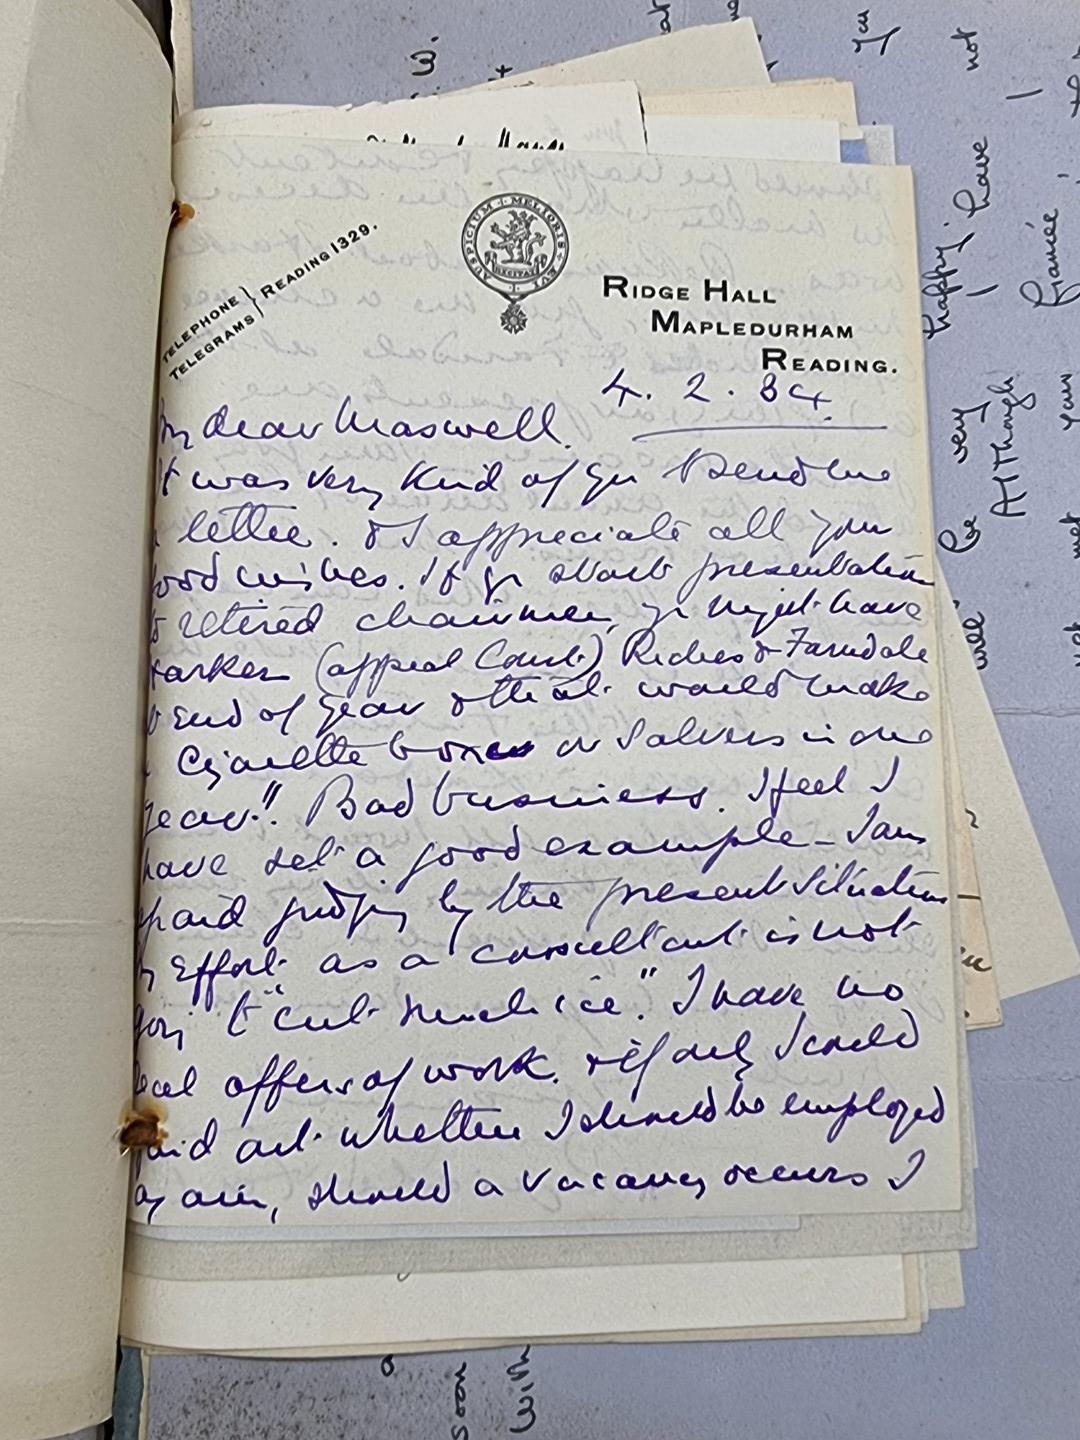 TELEPHONE
TELEGRAMS } READING 1329.
AUSPICIUM MELIORIS ÆVI
RECITAT
RIDGE HALL
MAPLEDURHAM
READING.
4. 2. 34.
My dear Maxwell.
It was very kind of you to send me
a letter. & I appreciate all your
good wishes. If you start presentation
to retired chairmen, you might have
Parker (appeal Court) Riches & Farndale
to end of year & that would make
Cigarette boxes or Salvers in one
year!! Bad business. I feel I
have set a good example - I am
afraid judging by the present situation
my effort as a consultant is not
going to "cut much ice". I have no
local offers of work. & if only I could
find out whether I should be employed
again, should a vacancy occurs I
happy. I have not
fiancée
will be very
Although
soon
With